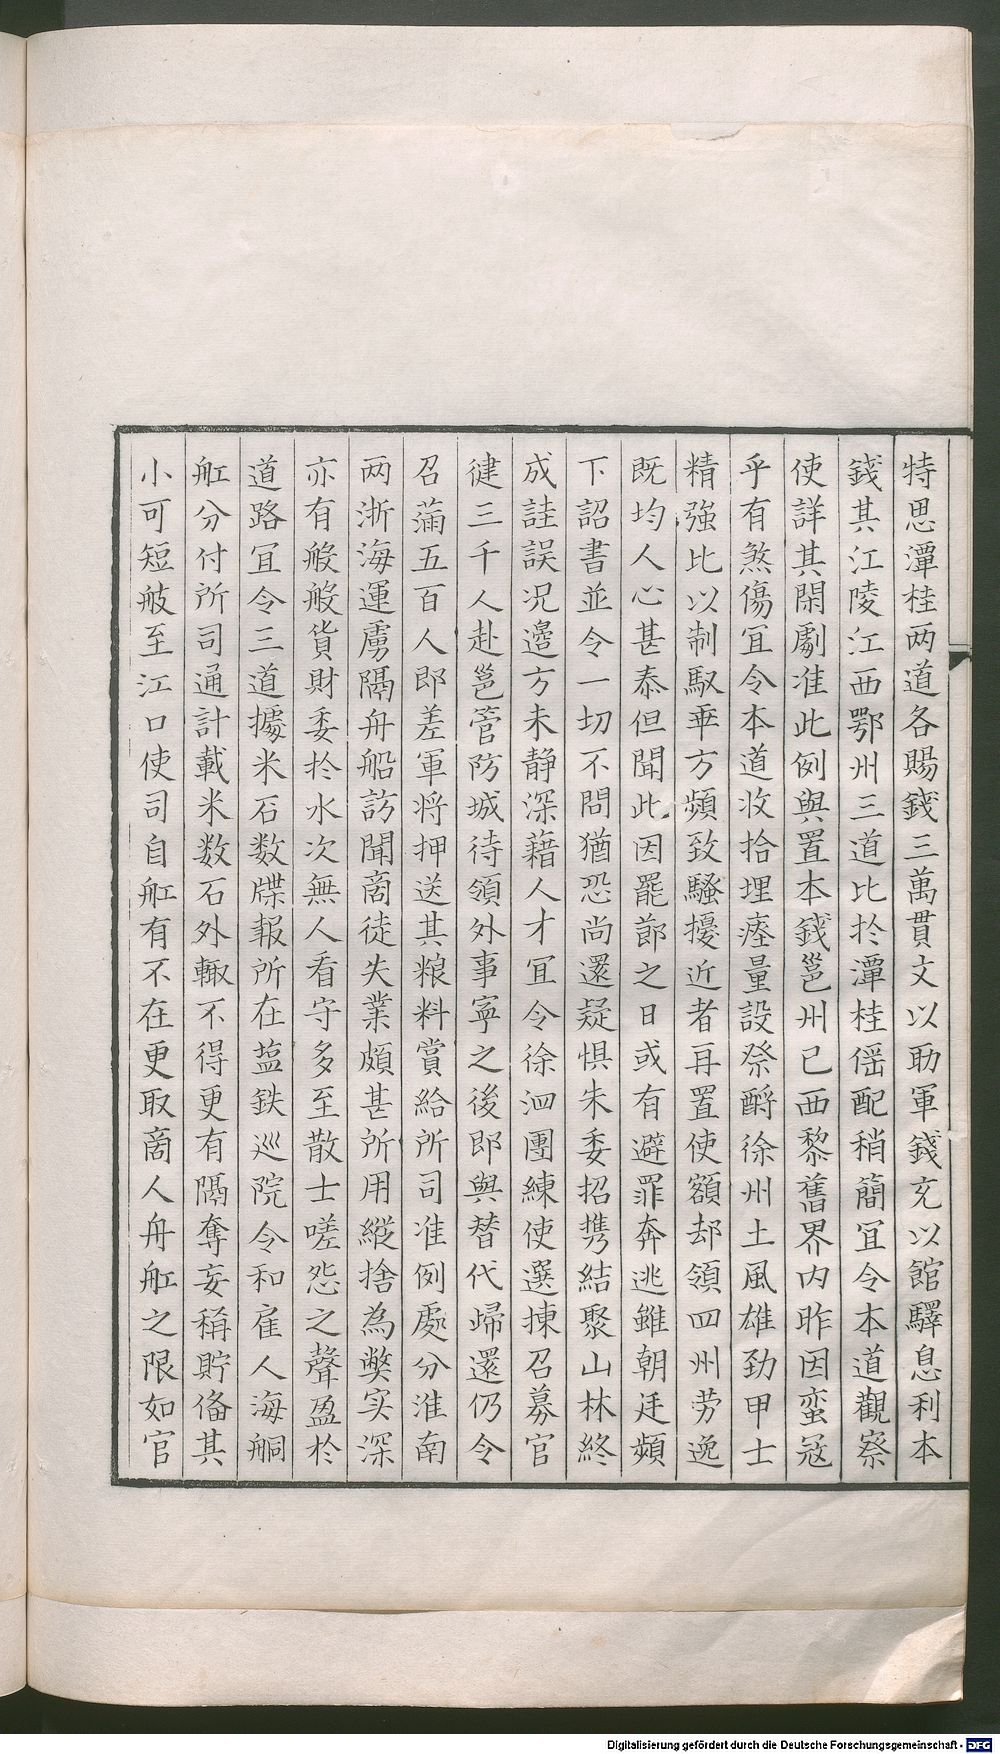 特思潭桂两道各賜錢三萬貫文以助軍錢充以館驛息利本
錢其江陵江西鄂州三道比扵潭桂徭配稍簡冝令本道觀察
使詳其閑劇准此例與置本錢邕州已西黎舊界内昨因蛮冦
乎有煞傷冝令本道收拾埋瘞量設祭酹徐州土風雄劲甲士
精強比以制馭乖方頻致騷擾近者再置使額却領四州劳逸
既均人心甚泰但聞此因罷節之日或有避罪奔逃雖朝廷頻
下詔書並令一切不問猶恐尚還疑惧朱委招携結聚山林終
成詿誤况邉方未静深藉人才冝令徐泗團練使選揀召募官
徤三千人赴邕管防城待領外事寧之後即與替代歸還仍令
召蒲五百人即差軍将押送其粮料賞給所司准例處分淮南
两浙海運虜隔舟船訪聞商徒失業頗甚所用縱捨為弊实深
亦有般般貨財委扵水次無人看守多至散士嗟怨之聲盈扵
道路冝令三道據米石数牒報所在盐鉄巡院令和雇人海舸
舡分付所司通計載米数石外輙不得更有隔奪妄稱貯俻其
小可短舨至江口使司自舡有不在更取商人舟舡之限如官
Digitalisierung gefördert durch die Deutsche Forschungsgemeinschaft - DFG